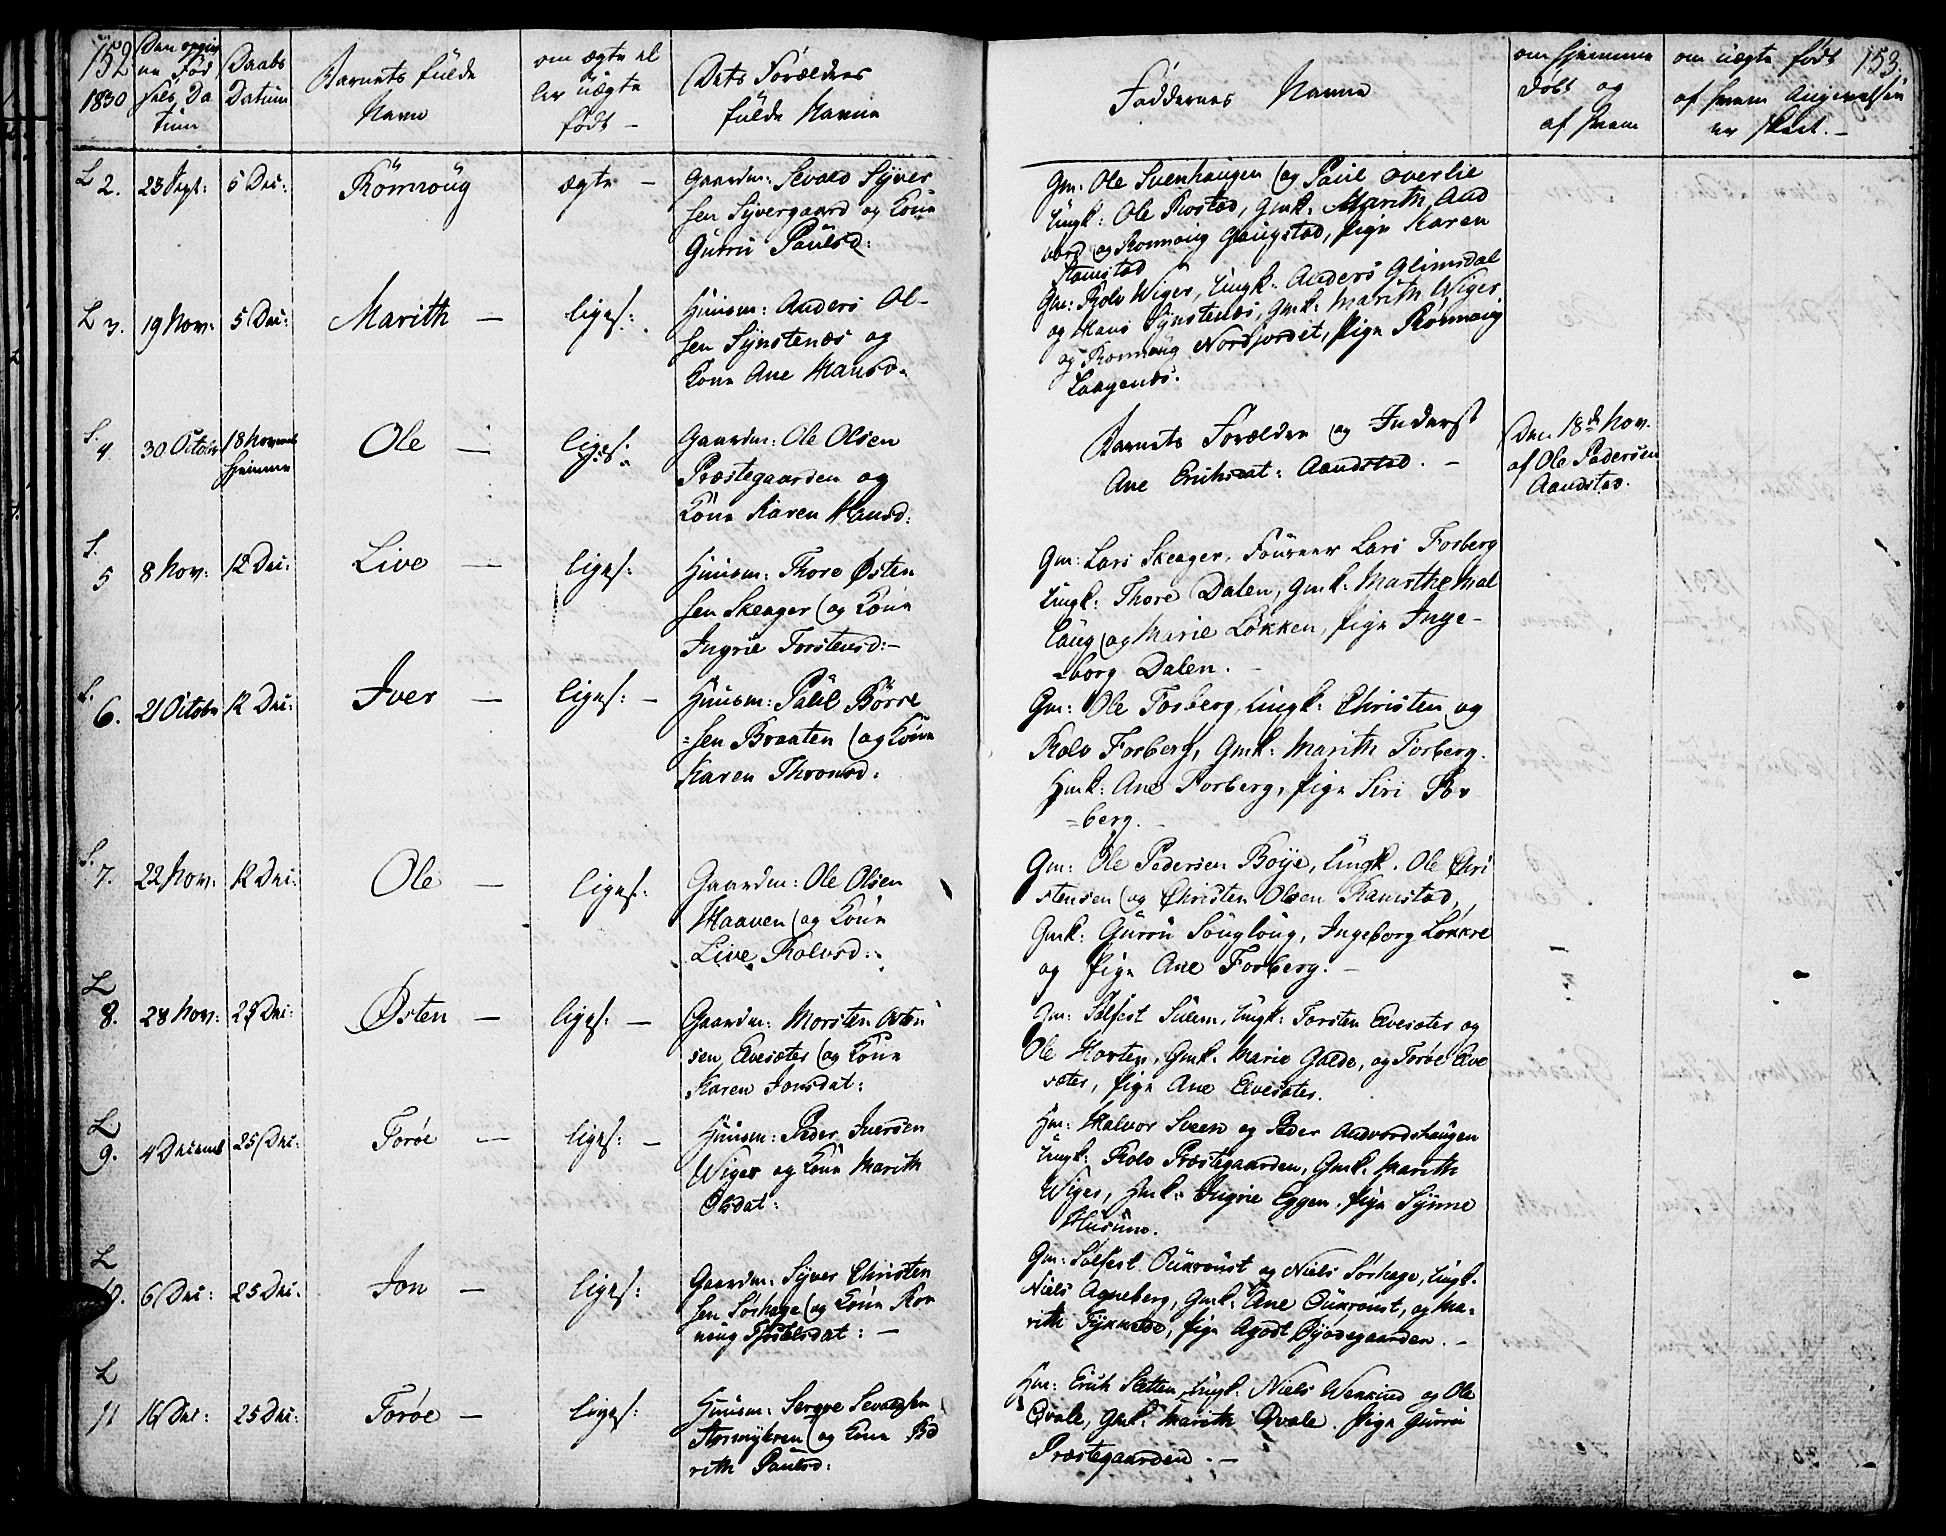 152
1830
Den opgiv
ne Fød
sels Da
tum
Daabs
Datum
Barnets fulde
Navn
om ægte el
ler uægte
født -
Dets Forældres
fulde Navne
Faddernes Navne
om hjemme
døbt og
af hvem
om uægte født
af hvem Angivelsen
er skeet. -
153.
L 2.
23 Sept:
5 Dec:
Römoüg
ægte -
Gaardm: Sevald Syver
sen Syvergaard og Kone
Guru Paulsd:
Gm: Ole Svenhaugen og Paul overlie
Ungk: Ole Rostad, Gmk: Marith And
vord og Ronnoug Gaugstad, Pige Karen
Stamstad
L 3.
19 Nov:
5 Dec:
Marith -
liges:
Huusm: Anders Ol-
sen Synstenæs og
Kone Ane Hansd.
Gm: Rolv Wiger, Ungk: Anders Glimsdal
og Hans Synstenæs, Gmk: Marith Wiger
og Ronnoug Nordjordet, Pige Ronnoug
Laagenæs.
S. 4.
30 Octobr
18 Novemb
hjemme
Ole -
liges:
Gaardm: Ole Olsen
Præstegaarden og
Kone Karen Hansd:
Barnets Forældre og Inderst
Ane Erichsdat: Aandstad. -
Den 18de Nov.
af Ole Pedersen
Aandstad.
S. 5
8 Nov:
12 Dec:
Live -
liges:
Huusm: Thore Østen
sen Skeager og Kone
Ingrie Torstensd: -
Gm: Lars Skeager, Foureer Lars Forberg
Ungk: Thore Dalen, Gmk: Marthe Mal
laug og Marie Løkken, Pige Inge-
borg Dalen. -
S. 6.
21 Octobr
12 Dec:
Iver -
liges: -
Huusm: Paul Börre
=sen Braaten og Kone
Karen Thronsd:
Gm: Ole Forberg, Ungk: Christen og
Rolv Forberg, Gmk: Marith Forberg.
Hmk: Ane Forberg, Pige Siri For
=berg. -
S. 7.
22 Nov:
12 Dec:
Ole -
liges:
Gaardm: Ole Olsen
Haaven og Kone
Live Rolvsd:
Gm: Ole Pedersen Böye, Ungk. Ole Chri
stensen og Christen Olsen Ramstad,
Gmk: Gurru Sougloug, Ingeborg Løkkre
og Pige Ane Forberg. -
L 8.
28 Nov:
25 Dec:
Østen -
liges: -
Gaardm: Morsten Østen
sen Elvesæter og Kone
Karen Jonsdat:
Gm: Solfest Sulem, Ungk: Torsten Elvesæter og
Ole Horten, Gmk: Marie Galde, og Torøe Elve
sæter, Pige Ane Elvesæter.
L 9.
4 Decemb
25 Dec:
Torøe -
liges: -
Huusm: Peder Iversen
Wiger og Kone Marith
Olsdat:
Hm: Halvor Sveen og Peder Andvordshaugen
Ungk: Rolv Præstegaarden, Gmk: Marith
Wiger, Hmk: Ingrie Eggen, Pige Synne
Husum.
L 10.
6 Dec:
25 Dec:
Jon -
liges:
Gaardm: Syver Christen
sen Sørhage og Kone Ron
noug Tostelsdat: -
Gm: Solfest Quuronst og Niels Sørhage, Ungk.
Niels Agneberg, Gmk: Ane Quuronst, og Ma-
rith Agodt Byødegaarden. -
L 11
16 Dec:
25 Dec:
Torøe -
liges:
Huusm: Sevaldsen
og Kone Bo
rith Paulsd:
Hm: Erich Sletten, Ungk: Niels og Ole
Qvale, Gmk: Marith Qvale. Pige Gurru
Præstegaarden. -